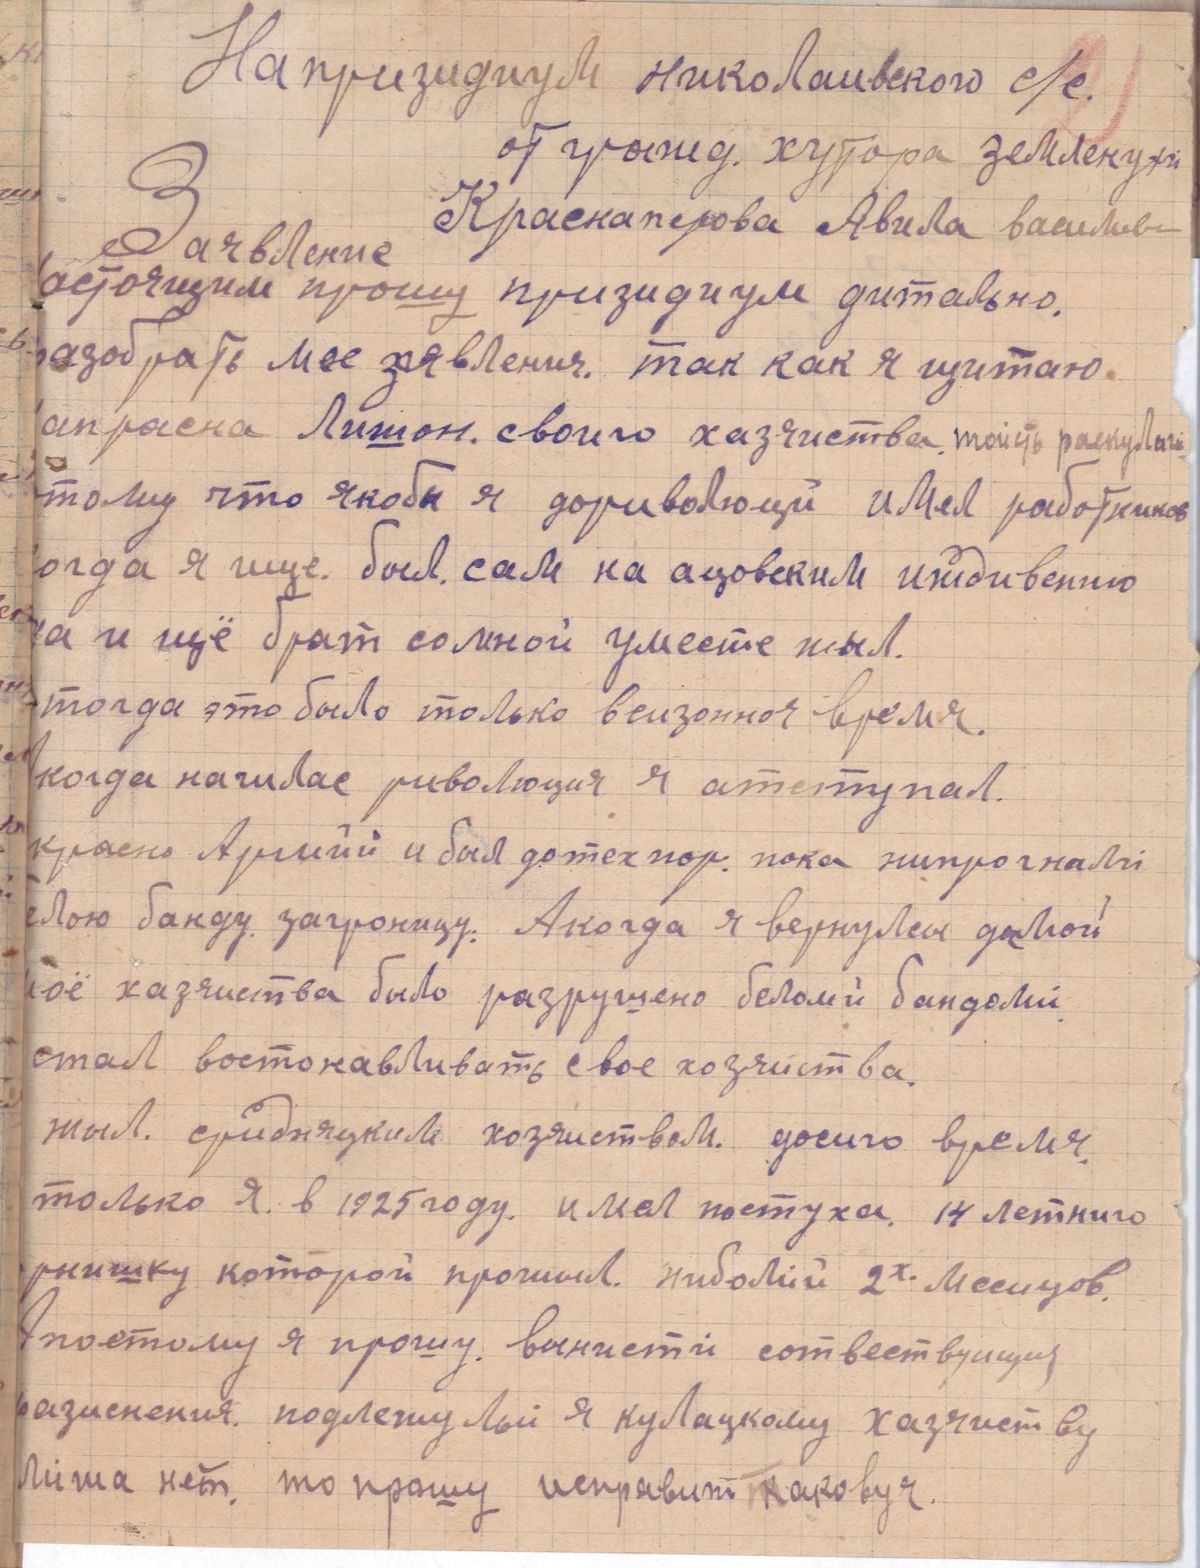 На призидиум николаивского с/с.
от гражд. хутора землянухи
Краснаперова Авила василив
Заявление
астоящим прошу призидиум дитально.
разобрать мое заявления. так как я щитаю.
апрасна лишон. своиго хазяиства. тоисть раскулачи
тому что якобы я дориволюций имел работников
огда я ище. был. сам на ацовским иждивению
а и ищё брат сомной уместе жыл.
тогда это было только всизонноя время.
когда началас риволюция я атступал.
красно Армий и был дотех пор. пока нипрогналі
елою банду. заграницу. Акогда я вернулси дамой
оё хазяиства было разрушено беломи бандоми.
стал востонавливать свое хозяиства.
жыл. сридняцким хозяиством. досиго время.
только я. в 1925 году. имел постуха. 14 летниго
рнишку которой прожыл. ниболій 2х. месицов.
Апостому я прошу. вынисті сотвествующия
разиснения. подлежу льи я кулацкому хазяиству
ліжа нет. то прошу исправит таковуя.